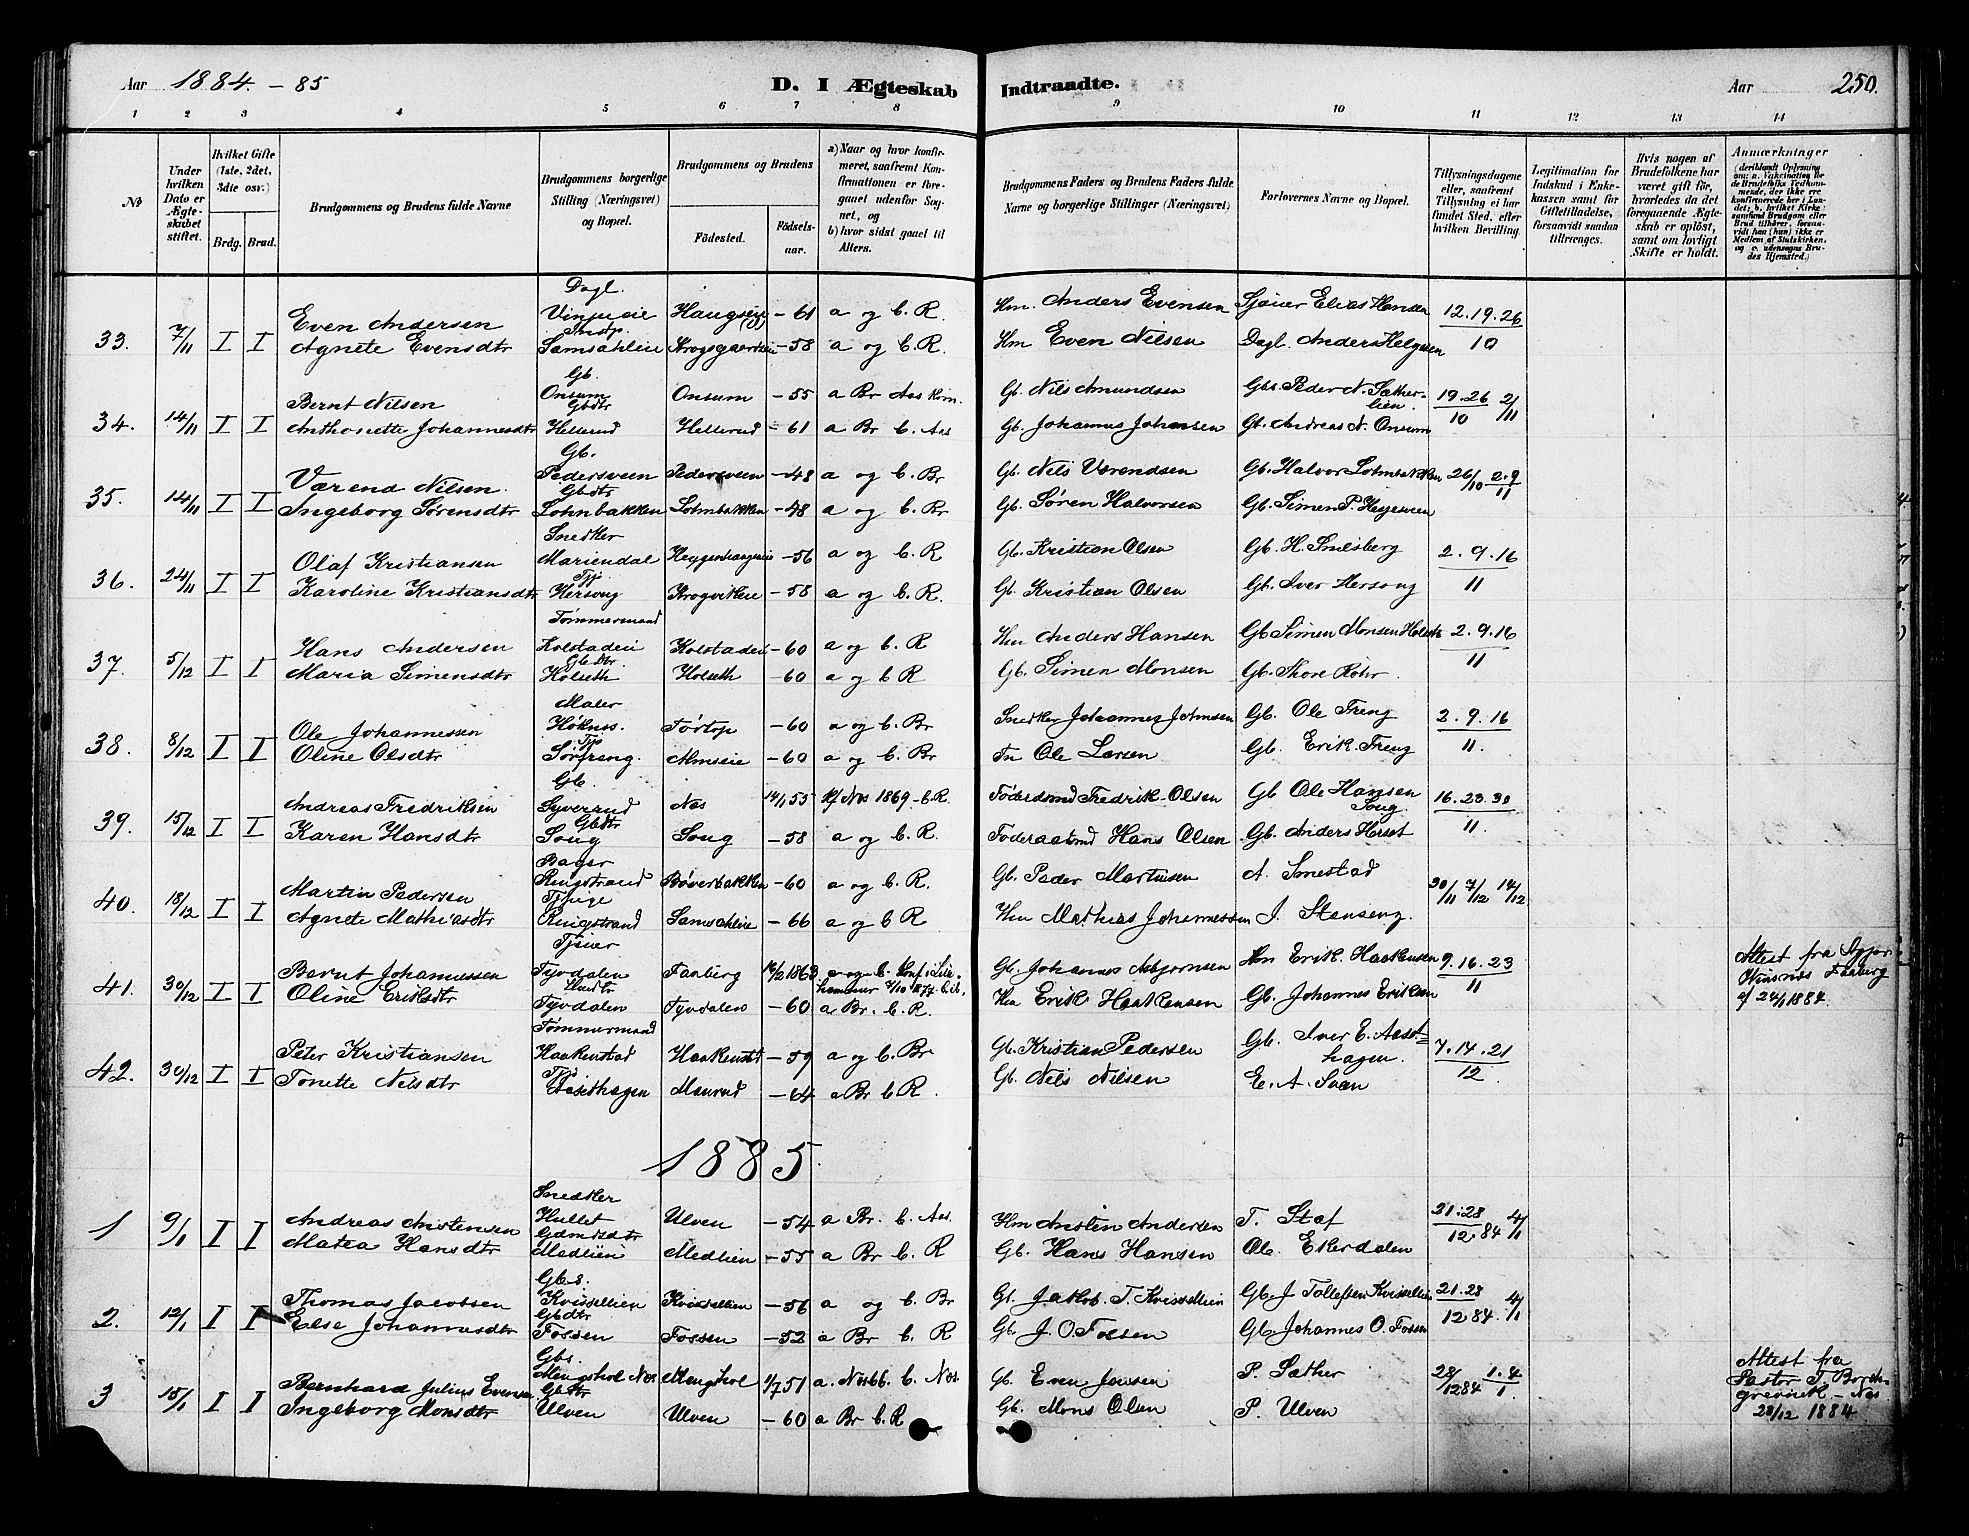 Aar 1884. - 85
D. I Ægteskab
Indtraadte.
Aar
250.
1 2 3 4 5 6 7 8 9 10 11 12 13 14
No
Under hvilken Dato er Ægteskabet stiftet.
Hvilket Gifte (1ste, 2det, 3die osv.)
Brdg. Brud.
Brudgommens og Brudens fulde Navne
Brudgommens borgerlige Stilling (Næringsvei) og Bopæl.
Brudgommens og Brudens
Fødested.
Fødselsaar.
a) Naar og hvor konfirmeret, saafremt Konfirmationen er foregaaet udenfor Sognet, og
b) hvor sidst gaaet til Alters.
Brudgommens Faders og Brudens Faders fulde Navne og borgerlige Stillinger (Næringsvei)
Forlovernes Navne og Bopæl.
Tillysningsdagene eller, saafremt Tillysning ei har fundet Sted, efter hvilken Bevilling.
Legitimation for Indskud i Enkekassen samt for Giftetilladelse, forsaavidt saadan tiltrænges.
Hvis nogen af Brudefolkene har været gift før, hvorledes da det foregaaende Ægteskab er opløst, samt om lovligt Skifte er holdt.
Anmærkninger
Dagl.
Even Andersen Vinjueie -61 a og b. R. Hm. Anders Evensen Elias Hansen 12.19.26
33. 7/11 I I Agnete Evensdtr Samsahleie -58 a og b. R. Hm Even Nilsen Dagl. Anders Helgesen 10
Gb.
Bernt Nilsen Onsum Onsum -55 a Br Aas Kom. Gb. Nils Amundsen Gbs. Peder N. Sætherlien. 19.26 2/11
Gbdtr
34. 14/11 I I Anthonette Johannesdtr Hellerud Hellerud -61 a Br b. Aas Gb. Johannes Johansen Gb. Andreas N. Onsum 10
Gb.
Værend Nilsen. Pedersveen Pedersveen -48 a og b. Br Gb. Nils Værendsen Gb. Halvor Lohnbakken 26/10 2.9
Gbdtr
35. 14/11 I I Ingeborg Sørensdtr Lohnbakken Lohnbakken -48 a og b. Br Gb. Søren Halvorsen Gb. Simen P. 11
Snedker
Olaf Kristiansen Mariendal -56 a og b. R Gb. Kristian Olsen Gb. H. Smedsberg 2.9.16
36. 24/11 I I Karoline Kristiansdtr Hersoug Krogvikeie -58 a og b. R. Gb. Kristian Olsen Gb. Iver Hersoug 11
Tømmermand
Hans Andersen Kolstadeie Kolstadeie -60 a og b. R Hm Anders Hansen Gb Simen Monsen Holseth 2.9.16
Gb. Dtr.
37. 5/12 I I Maria Simensdtr Holseth Holseth -60 a og b R Gb. Simen Monsen Gb. Thore Røhr. 11
Maler
Ole Johannessen Høknes. Tørtop -60 a og b. Br Snedker Johannes Johnsen Gb. Ole Freng 2.9.16
Tjp
38. 8/12 I I Oline Olsdtr Sørfreng. Almseie -60 a og b. Br Ole Larsen Gb. Erik Freng 11.
Gb.
Andreas Fredriksen Syverud Næs 14/1 55 Kf Næs 1869 - b. R. Føderaadsmd Fredrik Olsen Gb Ole Hansen Soug. 16.23.30
Gbdtr
39. 15/12 I I Karen Hansdtr Soug Soug -58 a og b. R. Føderaadsmd Hans Olsen Gb. Anders Herset 11.
Bager
Martin Pedersen Ringstrand Bøverbakken -60 a og b. R. Gb. Peder Martinsen A. Smestad 30/11 7/12 14/12
Tjpige
40. 18/12 I I Agnete Mathiasdtr Ringstrand Samsahleie -66 a og b R Hm Mathias Johannessen J. Stenseng.
Tjener
Bernt Johannessen Tyvdalen Faaberg 14/2 1863 Konf i Lillehammer 7/10 1877 Gb. Johannes Asbjørnsen Hm Erik Haakensen 9.16.23
41. 30/12 I I Oline Eriksdtr Tyvdalen Tyvdalen -60 a Br. b. R. Hm Erik Haakensen Gb. Johannes Eriksen 11
Attest fra Faaberg af 24/1 1884.
Tømmermand
Peter Kristiansen Haakenstad Haakenstd -59 a og b. Br Gb. Kristian Pedersen Gb. Iver E. Aasethagen. 7.14.21
42. 30/12 I I Tonette Nilsdtr Aasethagen Maurud -64 a Br b R. Gb. Nils Nilsen E. A. Svæn 12
1885
Snedker
Andreas Austensen Hullet Ulven -54 a Br. b. Aas. Hm Austen Andersen T. Staf 21.28 4/1
1 9/1 I I Matea Hansdtr Medlien Medlien -55 a Br b. R Gb. Hans Hansen Ole Ekerdalen 12.84
Gbs.
Thomas Jacobsen Kvissellien Kvissellien -56 a og b. Br Gb. Jakob T. Kvissellien Gb. J Tollefsen Kvissellien 21.28 4/1
Gbdtr
2. 12/1 I I Else Johannesdtr Fossen Fossen -52 a Br b. R Gb. J. O. Fossen Gb Johannes O. Fossen 12 84
Gbs.
Bernhard Julius Evensen Mengshol Næs Mengshol 1/7 51 a. Næs 66. b. Næs. Gb. Even Jensen P. Sæther 28/12 84 1.4
Gbdtr
3 15/1 I I Ingeborg Monsdtr Ulven Ulven -60 a Br b. R Gb. Mons Olsen P. Ulven 1
Attest fra Pastor T. Borchgrevink - Næs 28/12 1884